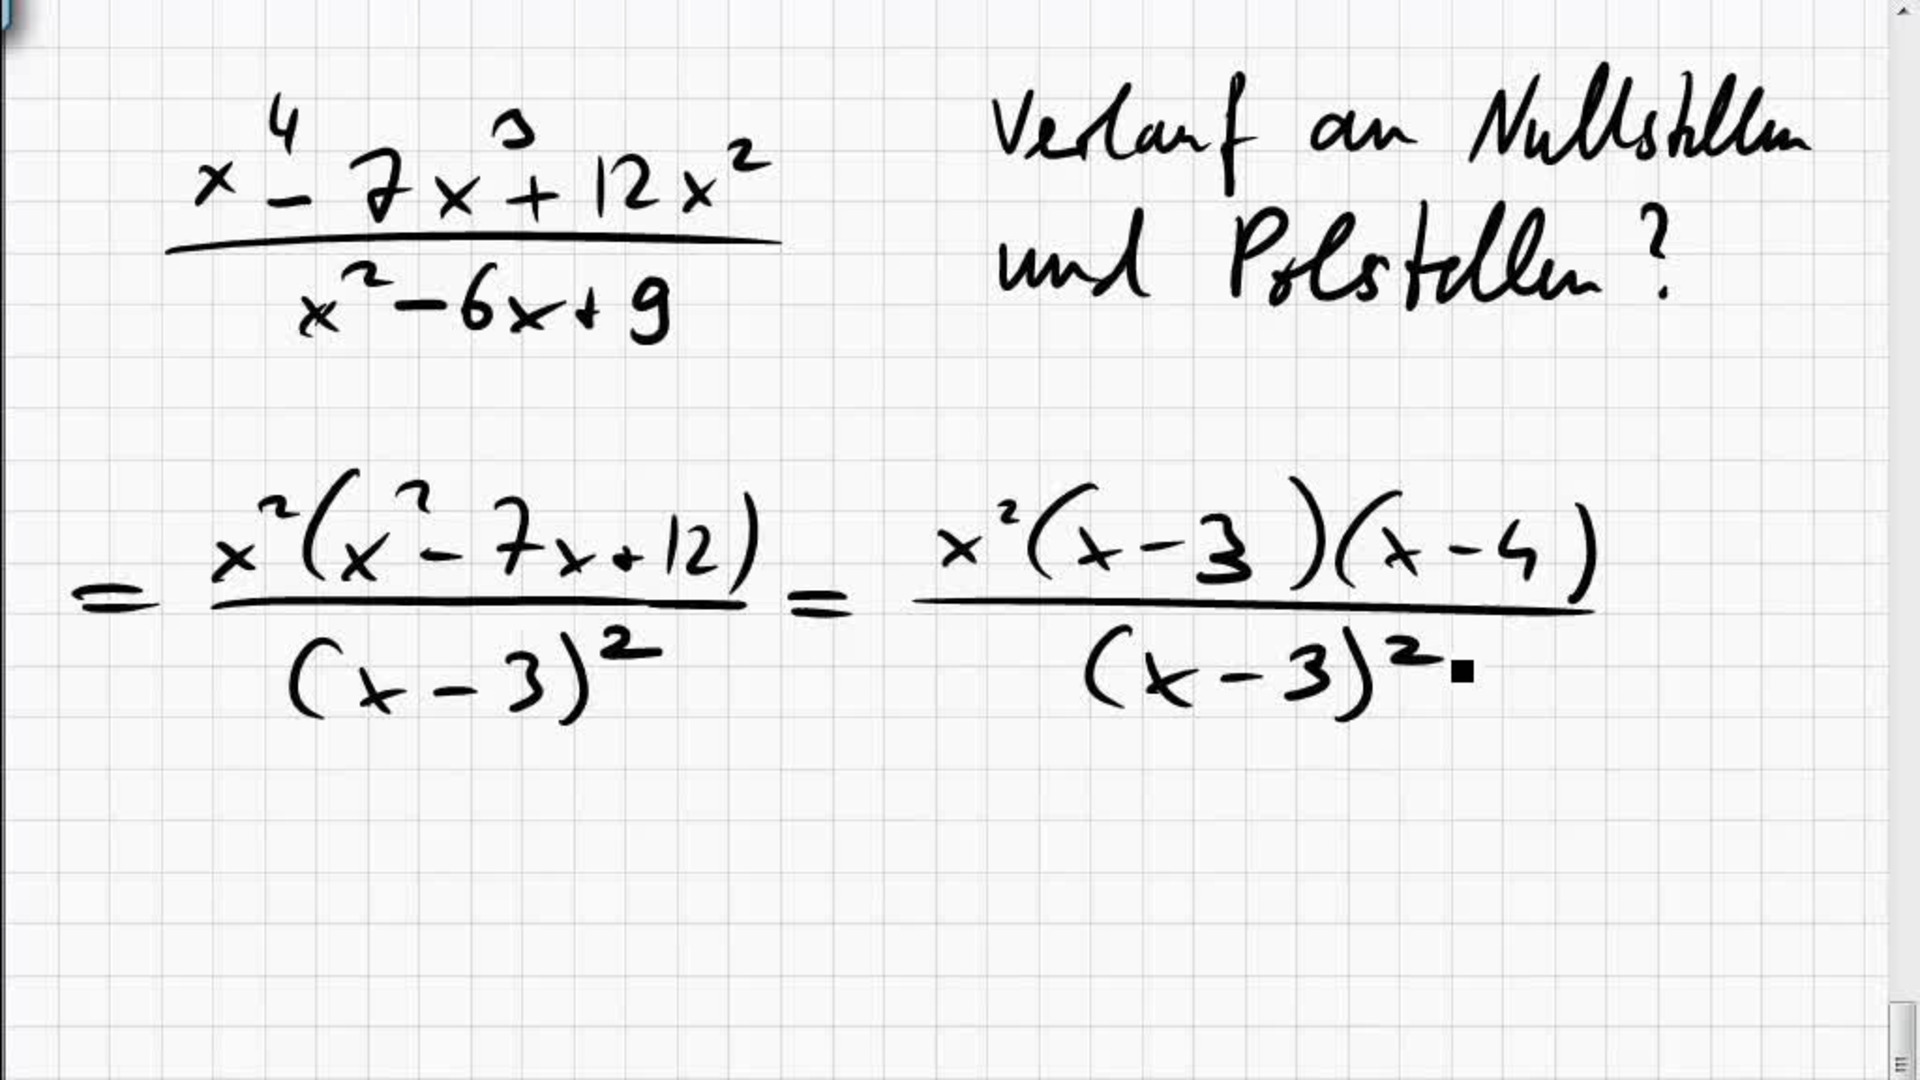 x^4 - 7x^3 + 12x^2
x^2 - 6x + 9
Verlauf an Nullstellen
und Polstellen?
= x^2(x^2 - 7x + 12) / (x - 3)^2 = x^2(x - 3)(x - 4) / (x - 3)^2